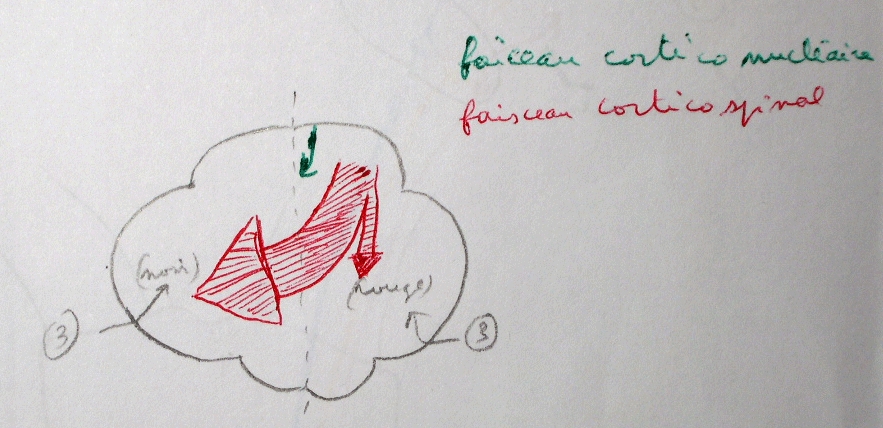 faiceau cortico nucléaire
faisceau cortico spinal
(noir)
(rouge)
3
3